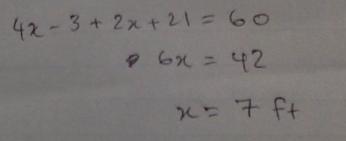 4x - 3 + 2x + 21 = 60
6x = 42
x = 7 ft